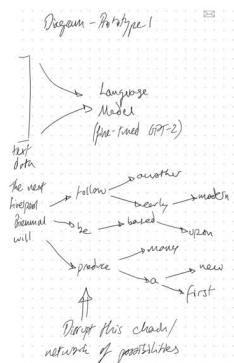 Diagram - Prototype 1
Language
Model
(fine-tuned GPT-2)
text
data
The next
Liverpool
Biennial
will
follow
another
early
modern
be
based
upon
produce
many
a
new
first
Disrupt this chain/
network of possibilities